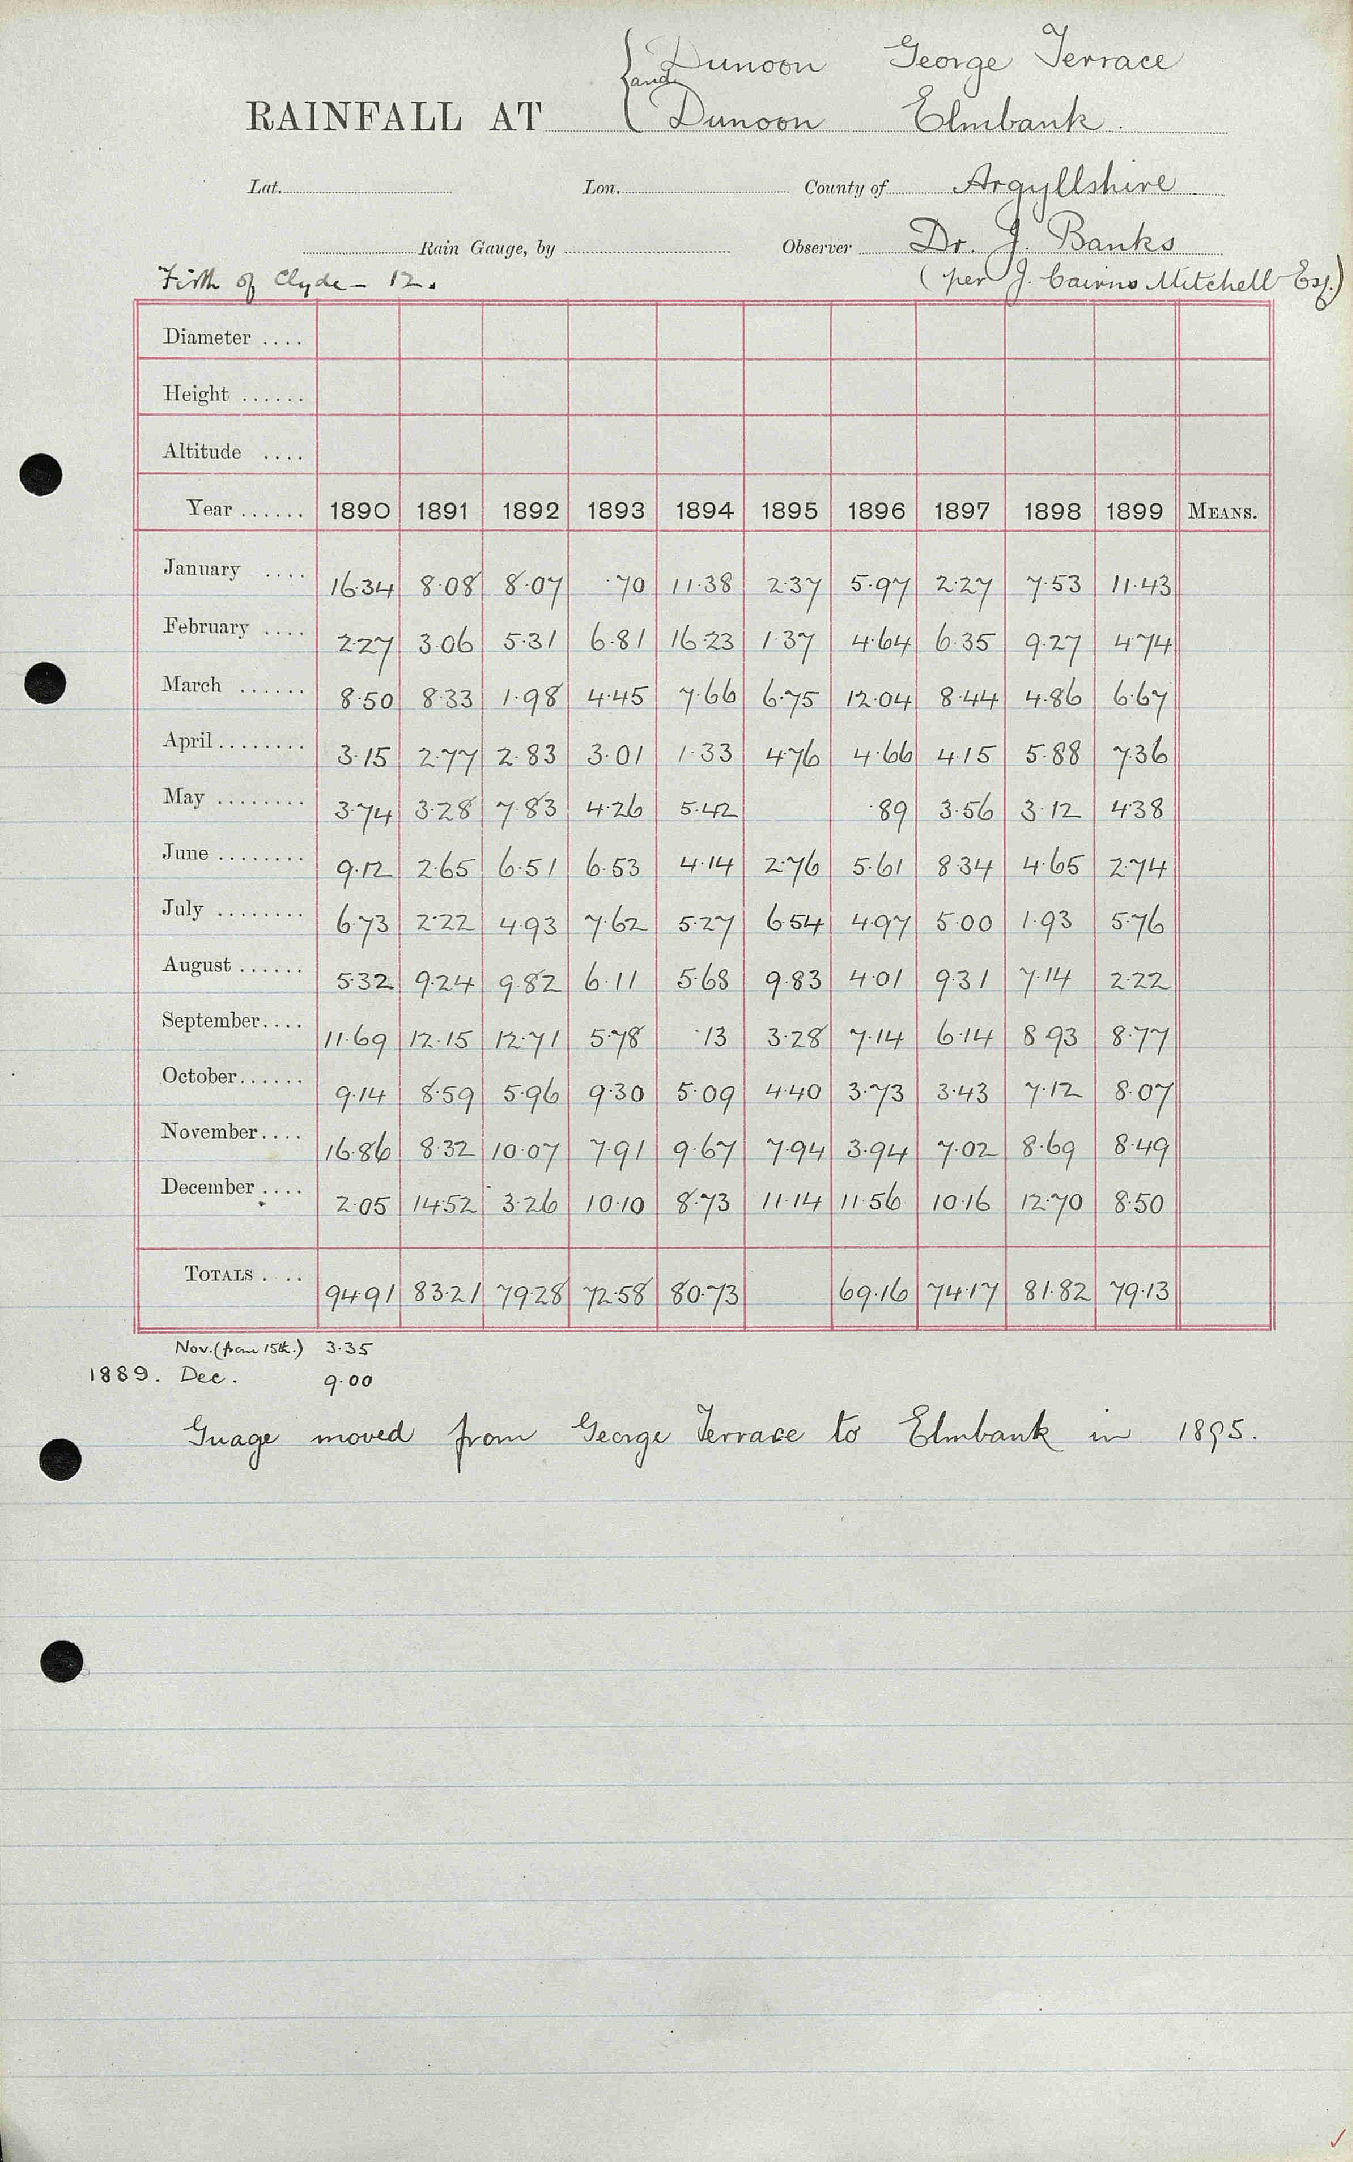 { Dunoon George Terrace
and
RAINFALL AT { Dunoon Elmbank.
Lat. Lon. County of Argyllshire
Rain Gauge, by Observer Dr. J. Banks
Firth of Clyde - 12. (per J. Cairns Mitchell Esq.)
Diameter ....
Height ......
Altitude ....
Year ...... 1890 1891 1892 1893 1894 1895 1896 1897 1898 1899 MEANS.
January .... 16·34 8·08 8·07 ·70 11·38 2·37 5·97 2·27 7·53 11·43
February .... 2·27 3·06 5·31 6·81 16·23 1·37 4·64 6·35 9·27 4·74
March ...... 8·50 8·33 1·98 4·45 7·66 6·75 12·04 8·44 4·86 6·67
April ........ 3·15 2·77 2·83 3·01 1·33 4·76 4·66 4·15 5·88 7·36
May ........ 3·74 3·28 7·83 4·26 5·42 ·89 3·56 3·12 4·38
June ........ 9·12 2·65 6·51 6·53 4·14 2·76 5·61 8·34 4·65 2·74
July ........ 6·73 2·22 4·93 7·62 5·27 6·54 4·97 5·00 1·93 5·76
August ...... 5·32 9·24 9·82 6·11 5·68 9·83 4·01 9·31 7·14 2·22
September.... 11·69 12·15 12·71 5·78 ·13 3·28 7·14 6·14 8·93 8·77
October...... 9·14 8·59 5·96 9·30 5·09 4·40 3·73 3·43 7·12 8·07
November.... 16·86 8·32 10·07 7·91 9·67 7·94 3·94 7·02 8·69 8·49
December .... 2·05 14·52 3·26 10·10 8·73 11·14 11·56 10·16 12·70 8·50
TOTALS .... 94·91 83·21 79·28 72·58 80·73 69·16 74·17 81·82 79·13
Nov. (from 15th.) 3·35
1889. Dec. 9·00
Guage moved from George Terrace to Elmbank in 1895.